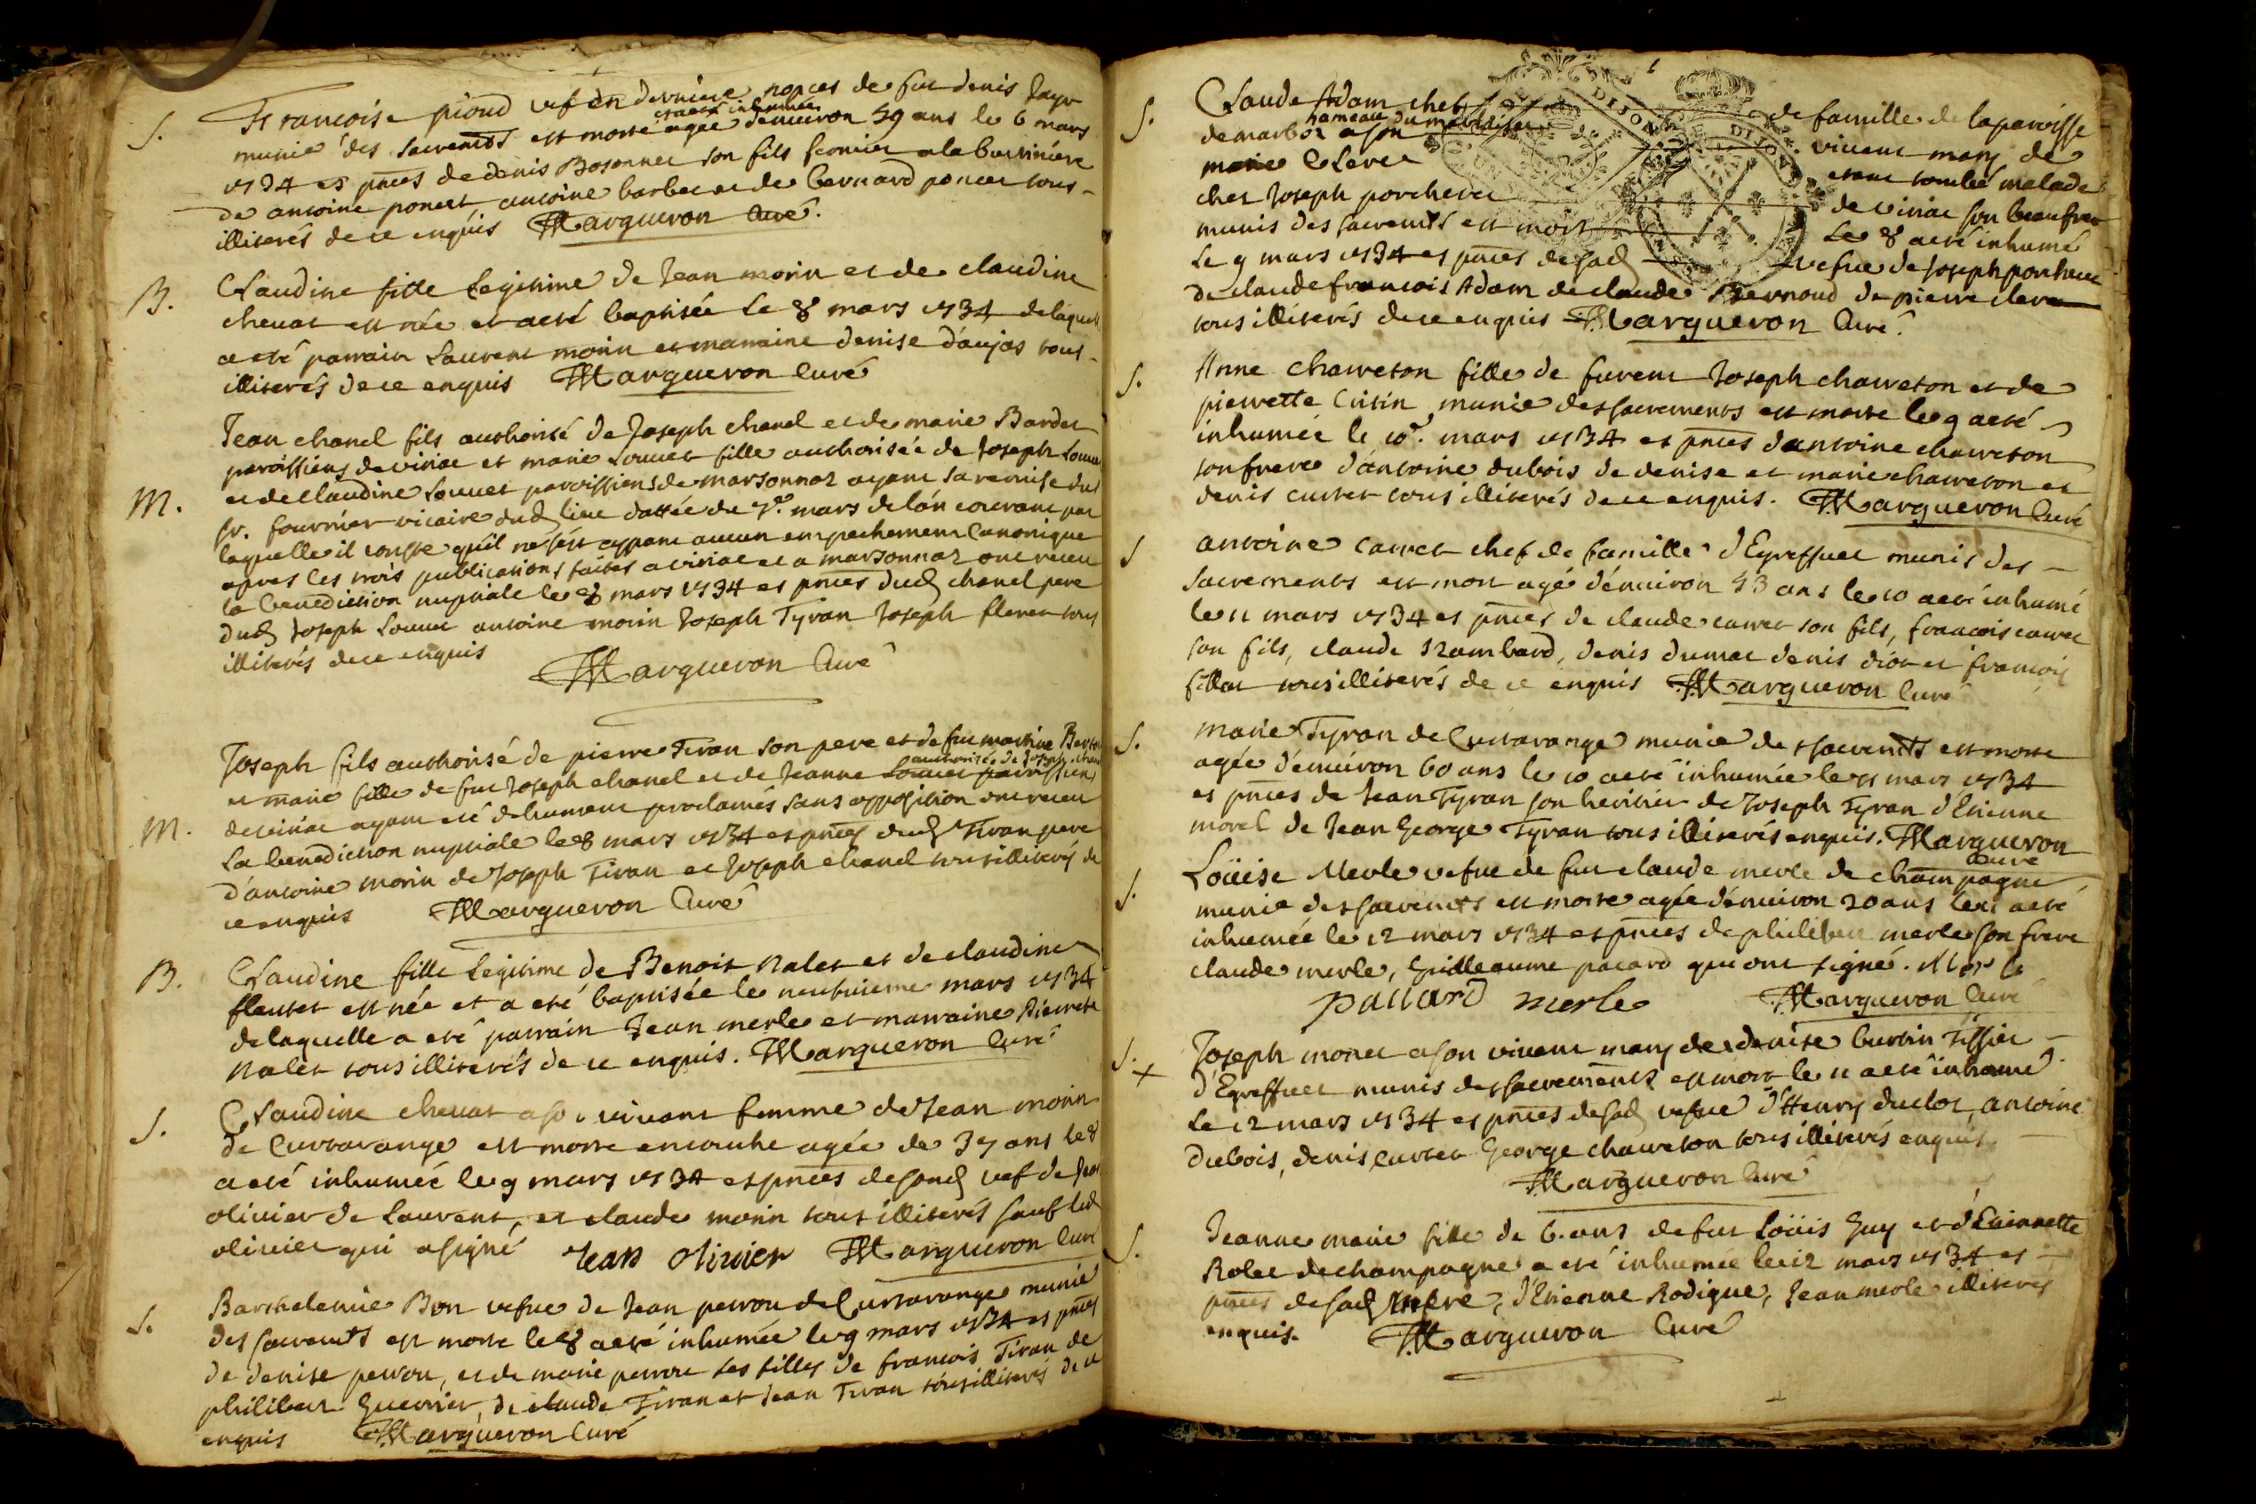 S. Francoise pioud vef en derniere nopces de feu denis
et a eté inhumée
munie des sacremts est morte agée denviron 59 ans le 6 mars
1734 es pnces de denis Bosonnet son fils fermier a la
de antoine poncet antoine barbet et de bernard poncet tous
illiterés de ce enquis Margueron Curé.
B. Claudine fille legitime de Jean morin et de claudine
chevat est née et a eté baptisée le 8 mars 1734 de laquelle
a eté parrain Laurent morin et marraine denise daujas tous
illiterés de ce enquis Margueron Curé
Jean chanel fils authorisé de Joseph chanel et de marie Bardet
paroissiens de viriat et marie Louvet fille authorisée de Joseph Louvet
M. et de claudine Louvet paroissiens de marsonnaz ayant sa remise du
Sr. fournier vicaire dud lieu dattée du 7e. mars de lan courant par
laquelle il conste qu'il ne s'est apparu aucun empechement Canonique
apres les trois publications faites a viriat et a marsonnaz ont receu
la benediction nuptiale le 8 mars 1734 es pnces dud chanel pere
dud Joseph Louvet antoine morin Joseph Tyran Joseph tous
illiterés de ce enquis
Margueron Curé
Joseph fils authorisé de pierre Tiran son pere et de fue
authorisée de Joseph
et marie fille de feu Joseph chanel et de Jeanne Louvet paroissiens
M. de viriat ayant eté dehument proclamés sans opposition ont receu
La benediction nuptiale le 8 mars 1734 es pnces dud Tiran pere
d'antoine morin de Joseph Tiran et Joseph chanel tous illiterés de
ce enquis Margueron Curé
B. Claudine fille legitime de Benoit Nalet et de claudine
flautet est née et a eté baptisée le neufvieme mars 1734
de laquelle a eté parrain Jean merle et marraine Pierrete
Nalet tous illiterés de ce enquis. Margueron Curé
S. Claudine chevat a son vivant femme de Jean morin
de Curtarange est morte en couche agée de 37 ans le 8
a eté inhumée le 9 mars 1734 es pnces de sond vef de Jean
olivier de Laurent, et claude morin tous illiterés sauf led
olivier qui a signé Jean olivier Margueron Curé
S. Barthelemie Bon vefue de Jean perrou de Curtarange munie
des sacremts est morte le 8 a eté inhumée le 9 mars 1734 es pnces
de denise perrou, et de marie perrou ses filles de francois Tiran de
philibert Guerrier, de claude Tiran et Jean Tiran tous illiterés de ce
enquis Margueron Curé
S. Claude Adam chef de famille de la paroisse
hameau du
de marboz a son vivant mary de
marie Clere etant tombé malade
chez Joseph porcheret de viriat son beaufrere
munis des sacremts est mort le 8 a eté inhumé
Le 9 mars 1734 es pnces de sad vefue de Joseph porcheret
de claude francois Adam de claude Bernoud de pierre clere
tous illiterés de ce enquis Margueron Curé.
S. Anne chaureton fille de furent Joseph chaureton et de
pierrette Cutin munie des sacrements est morte le 9 a eté
inhumée le 10e. mars 1734 es pnces dantoine chaureton
son frere d'antoine dubois de denise et marie chaureton et
denis curtet tous illiterés de ce enquis. Margueron Curé
S antoine carret chef de famille d'Egreffuet munis des
sacrements est mort agé d'environ 53 ans le 10 a eté inhumé
le 11 mars 1734 es pnces de claude carret son fils, francois carret
son fils, claude Rambard, denis dumat denis diot et francois
fillot tous illiterés de ce enquis Margueron Curé
S. marie Tyran de Curtarange munie des sacremts est morte
agée d'environ 60 ans le 10 a eté inhumée le 11 mars 1734
es pnces de Jean Tyran son heritier de Joseph Tyran d'Etienne
morel de Jean George Tyran tous illiterés enquis. Margueron
Curé
S. Loüise Merle vefue de feu claude merle de champagne
munie des sacremts est morte agée d'environ 20 ans le 11 a eté
inhumée le 12 mars 1734 es pnces de philibert merle son frere
claude merle, Guilleaume pacard qui ont signé.
paccard merle Margueron Curé
S. Joseph monet a son vivant mary de denise burtin Tissier
x d'Egreffuet munis des sacrements est mort le 11 a eté inhumé
Le 12 mars 1734 es pnces de sad vefue d'Henry duclot, antoine
Dubois, denis curtet George chaureton tous illiterés enquis
Margueron Curé
S. Jeanne marie fille de 6. ans de feu Loüis Guy et d'
Rolet de champagne a eté inhumée le 12 mars 1734 es
pnces de sad mere, d'Etienne Rodigue, Jean merle illiterés
enquis. Margueron Curé
DIJON